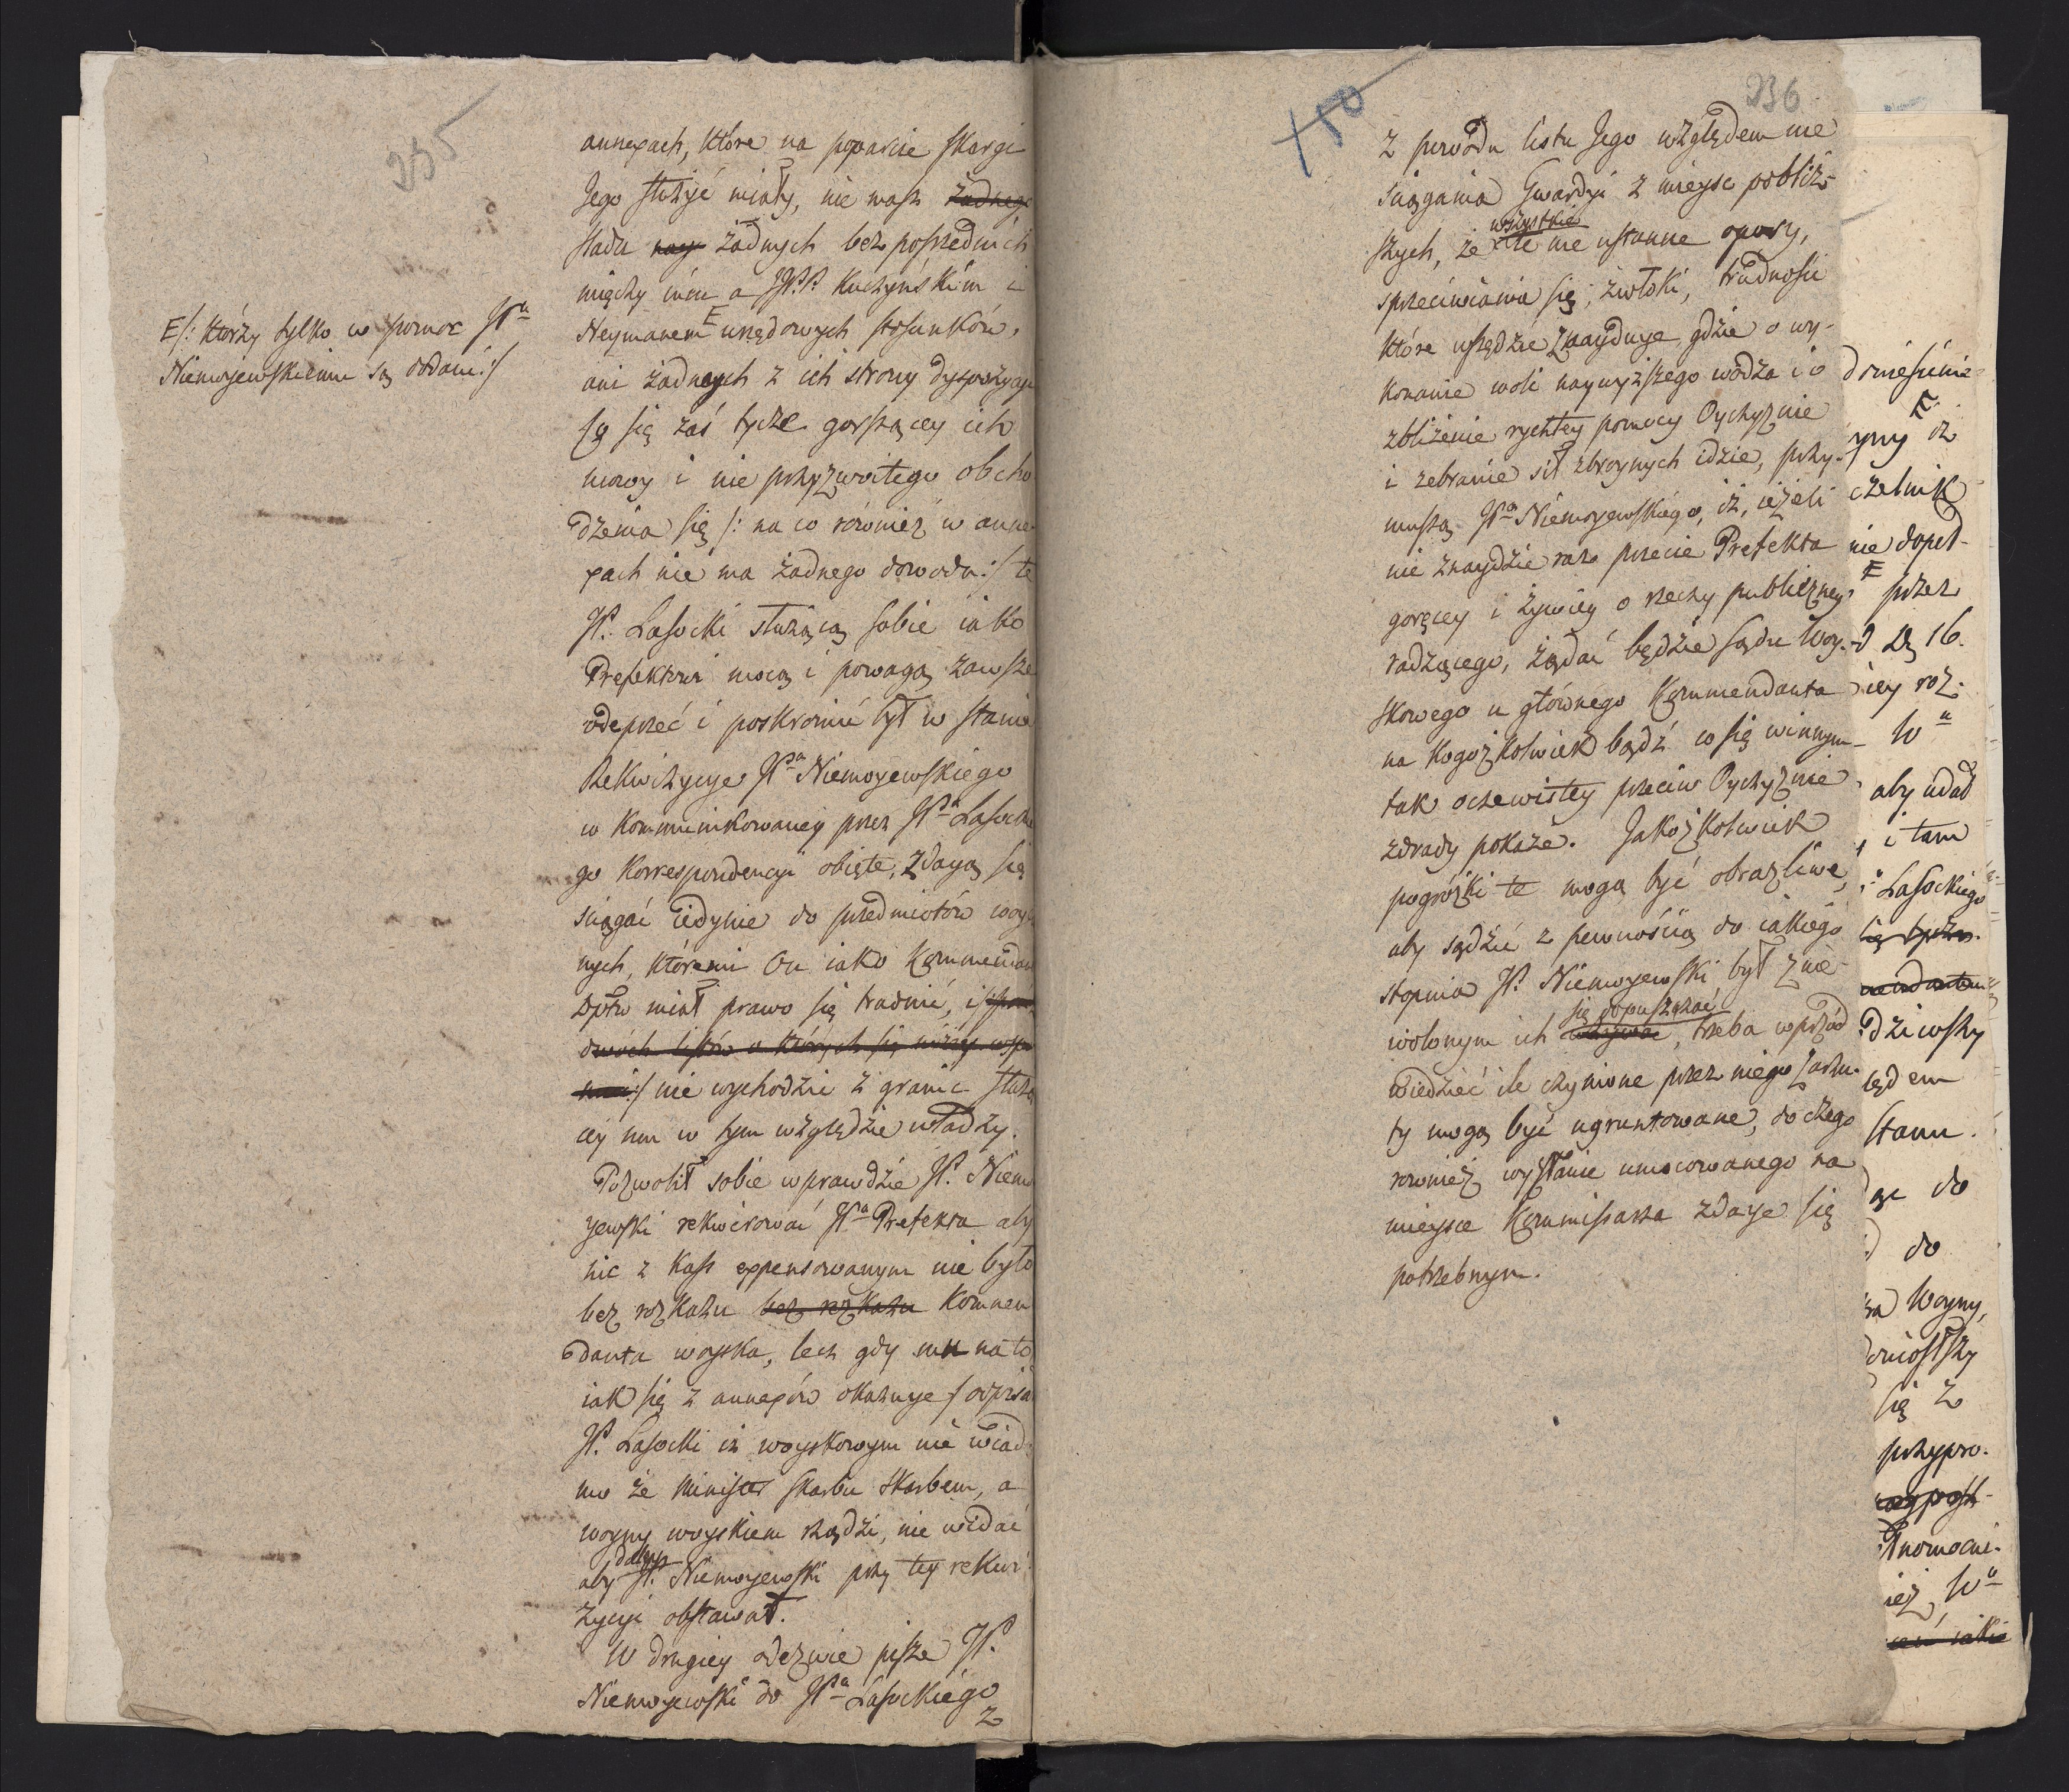 235
annexach, które na poparcie skargi
Jego służyć miały, nie masz żadnego
sladu żadnych bezpośrednich
między nim a JPP. Kuczyńskim i
E/: którzy tylko w pomoc JPu
Niemojewskiemu są dodani:/
Neymanem E urzędowych stosunków,
ani żadnych z ich strony dyspozycyi
się zaś tycze gorszącey ich
mowy i nie przyzwoitego obcho
dzenia się /: na co również w anne
xach nie ma żadnego dowodu:/ te
JP. Lasocki służącą sobie iako
Prefektowi mocą i powagą zawsze
odeprzeć i poskromić był w stanie
Rekwizycye JPa Niemojewskiego
w kommunikowaney przez JPa Lasockie
go korrespondencyi obięte, zdayą się
sciągać iedynie do przedmiotów woy
nych, któremi On iako Kommendant
Dptu miał prawo się trudnić, i
dwóch listów o których się niżey wspo
mni:/ nie wychodzić z granic służą
cey mu w tym względzie władzy.
Pozwolił sobie wprawdzie JP. Niemo
yewski rekwirować JPa Prefekta aby
nic z kass expensowanym nie było
bez rozkazu bez rozkazu Kommen
danta woyska, lecz gdy mu na to
iak się z annexów okazuye/ odpisał
JP. Lasocki iż woyskowym nie wiado
mo że Minister skarbu skarbem, a
woyny woyskiem rządzi, nie widać
daley
aby JP. Niemojewski przy tey rekwi
zycyi obstawał.
W drugiey odezwie pisze JP.
Niemojewski do JPa Lasockiego
z
150
236
z powodu listu Jego względem nie
sciągania Gwardyi z mieysc pobliż-
wszystkie
szych, że te nie ustanne opory,
sprzeciwiania się, zwłoki, trudności
które wszędzie znayduye gdzie o wy-
konanie woli naywyższego wodza i o
zbliżenie rychłey pomocy Oychyznie
i zebranie sił zbroynych idzie, przy-
muszą JPa Niemojewskiego, iż, ieżeli
nie znaydzie raz przecie Prefekta
goręcey i żywiey o rzeczy publiczney
radzącego, żądać będzie sądu Woy-
skowego u głównego Kommendanta
na kogożkolwiek bądź co się winnym
tak oczewistey przeciw Oychyznie
zdrady pokaże. Jakożkolwiek
pogróżki te mogą być obraźliwe,
aby sądzić z pewnością do iakiego
stopnia JP. Niemojewski był znie-
się dopuszczać
wolonym ich używać, trzeba wprzód
wiedzieć ile czynione przez niego zarzu-
ty mogą być ugruntowane, do czego
również wysłanie umocowanego na
mieysce Kommissarza zdaye się
potrzebnym.
E
iż
nie dopeł-
E przez
16.
iey roz-
Wu
aby udał
i tam
Lasockiego
stanu.
do
do
Woyny,
się z
przypro-
Wu
iakie